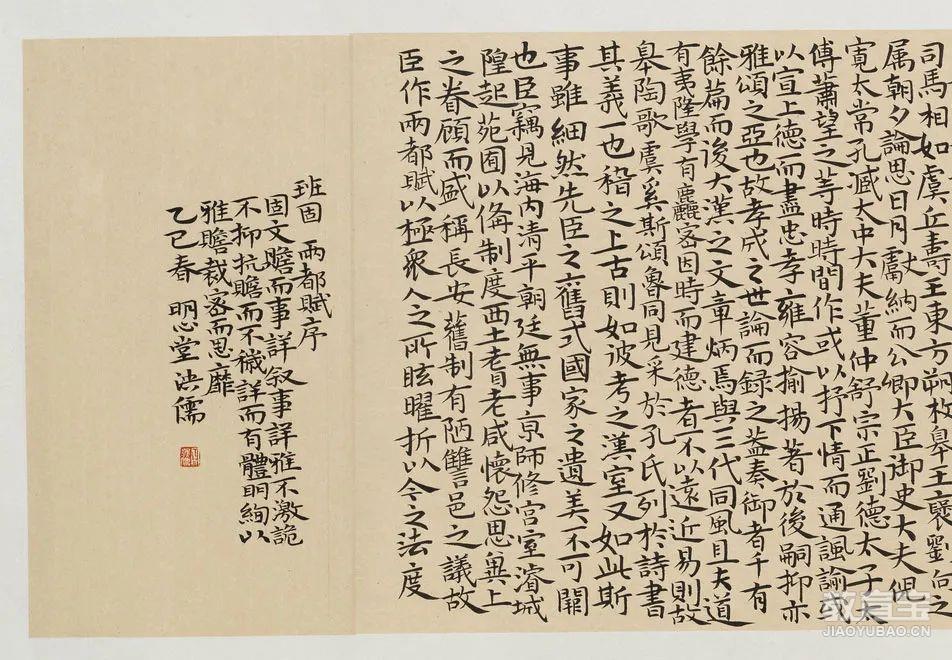 司馬相如虞丘壽王東方朔枚皋王襃劉向之
属朝夕論思日月獻納而公卿大臣御史大夫倪
寬太常孔臧大中大夫董仲舒宗正劉德太子太
傅蕭望之等時時間作或以抒下情而通諷諭或
以宣上德而盡忠孝雍容揄揚著於後嗣抑亦
雅頌之亞也故孝成之世論而録之葢奏御者千有
餘篇而後大漢之文章炳焉與三代同風且夫道
有夷隆學有麤密因時而建德者不以遠近易則故
皋陶歌虞奚斯頌魯同見采於孔氏列於詩書
其義一也稽之上古則如彼考之漢室又如此斯
事雖細然先臣之舊式國家之遺美不可闕
也臣竊見海内清平朝廷無事京師修宫室濬城
隍起苑囿以備制度西土耆老咸懷怨思兾上
之眷顧而盛稱長安舊制有陋雒邑之議故
臣作兩都賦以極衆人之所眩曜折以今之法度
班固 兩都賦序
固文贍而事詳叙事詳雅不激詭
不抑抗贍而不穢詳而有體明絢以
雅贍裁密而思靡
乙巳春 明心堂洪儒
教育宝
JIAOYUBAO.CN